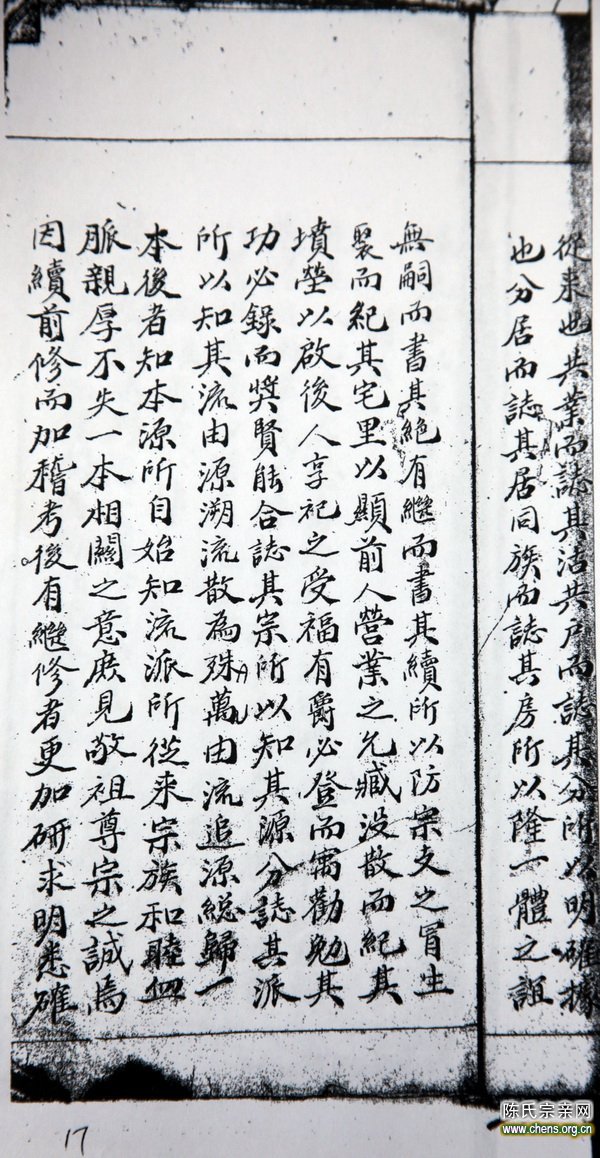 從來也共業而誌其沽共戶而誌其分所以明確據
也分居而誌其居同族而誌其房所以隆一體之誼
無嗣而書其絶有繼而書其續所以防宗支之冒生
聚而紀其宅里以顯前人營業之允臧没散而紀其
墳塋以啟後人享祀之受福有爵必登而寓勸勉其
功必錄而奬賢能合誌其宗所以知其源分誌其派
所以知其流由源溯流散為殊萬由流追源総歸一
本後者知本源所自始知流派所從来宗族和睦血
脈親厚不失一本相關之意庶見敬祖尊宗之誠焉
因續前修而加稽考後有繼修者更加研求明悉確
17
陈氏宗亲网
www.chens.org.cn